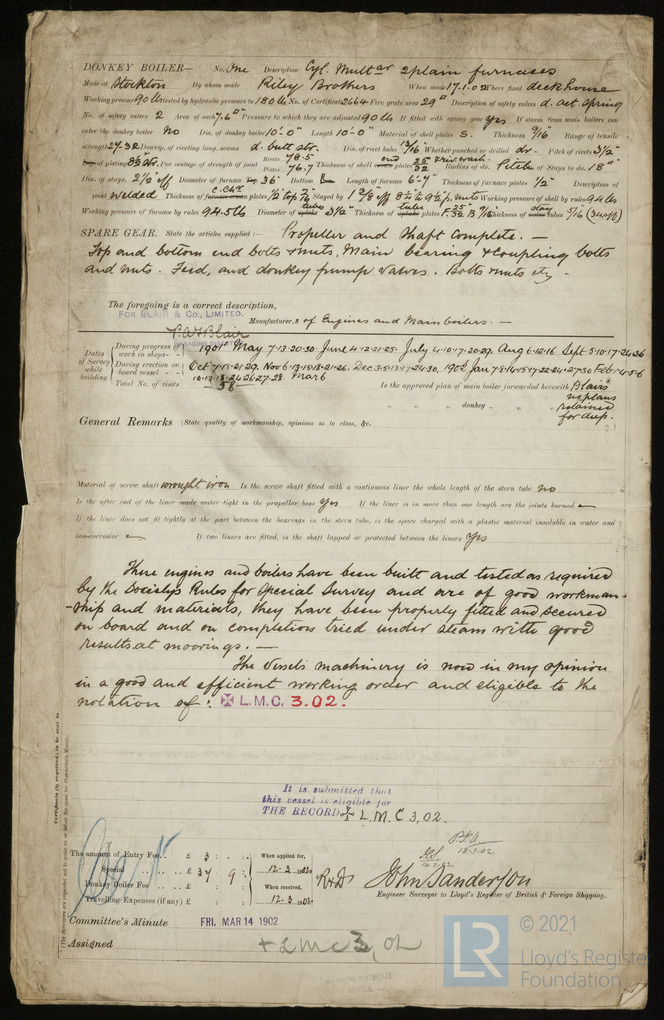 DONKEY BOILER— No. One Description Cyl. Multar 2 plain furnaces
Made at Stockton By whom made Riley Brothers When made 17.1.02 Where fixed deckhouse
Working pressure 90 lb tested by hydraulic pressure to 180 lb No. of Certificate 2664 Fire grate area 29 Description of safety valves d. act spring
No. of safety valves 2 Area of each 7.6" Pressure to which they are adjusted 90 lb If fitted with easing gear Yes If steam from main boilers can
enter the donkey boiler No Dia. of donkey boiler 10'-0" Length 10'-0" Material of shell plates S. Thickness 9/16 Range of tensile
strength 27-32 Descrip. of riveting long. seams d. butt str. Dia. of rivet holes 13/16 Whether punched or drilled dr. Pitch of rivets 3 1/2"
of plating 8 1/2 str. Per centage of strength of joint Rivets 78.5 Plates 76.7 Thickness of shell end plates 25/32 Radius of do. Stays to do. 18"
Dia. of stays. 2 1/2 eff Diameter of furnace Top 36" Bottom Length of furnace 6'-7" Thickness of furnace plates 1/2" Description of
joint welded Thickness of plates Stayed by 1 3/8 eff 8 1/2 x 9 1/2 p. nuts Working pressure of shell by rules 94 lbs
Working pressure of furnace by rules 94.5 lbs Diameter of tubes 3 1/2" Thickness of tube plates Thickness of stay tubes 5/16
SPARE GEAR. State the articles supplied:— Propeller and shaft complete. —
Top and bottom end bolts & nuts, Main bearing & coupling bolts
and nuts. Feed, and donkey pump valves. Bolts & nuts etc. —
The foregoing is a correct description,
FOR BLAIR & CO., LIMITED.
Manufacturers of Engines and Main boilers. —
Dates of Survey while building
During progress of work in shops— 1901 May 7.13.20.30. June 4.12.21.25. July 4.10.17.20.29. Aug 6.12.16. Sept 5.10.17.24.26
During erection on board vessel— Oct 7.15.21.29. Nov 6.13.15.18.21.26. Dec 3.5.13.17.24.30. 1902 Jan 7.8.14.15.17.22.24.27.30 Feb 1.4.5.6
10.13.18.24.26.27.28. Mar 6
Total No. of visits 58
Is the approved plan of main boiler forwarded herewith Blair's
" " " donkey " " "
no plans
retained
for dup.
General Remarks (State quality of workmanship, opinions as to class, &c.
Material of screw shaft wrought iron Is the screw shaft fitted with a continuous liner the whole length of the stern tube no
Is the after end of the liner made water tight in the propeller boss yes If the liner is in more than one length are the joints burned —
If the liner does not fit tightly at the part between the bearings in the stern tube, is the space charged with a plastic material insoluble in water and
non-corrosive — If two liners are fitted, is the shaft lapped or protected between the liners Yes
These engines and boilers have been built and tested as required
by the Society's Rules for Special Survey and are of good workman-
-ship and materials, they have been properly fitted and secured
on board and on completion tried under steam with good
results at moorings. —
The Vessel's machinery is now in my opinion
in a good and efficient working order and eligible to the
notation of: ✠ L.M.C. 3.02.
It is submitted that
this vessel is eligible for
THE RECORD ✠ L.M.C 3,02.
18.3.02
14.3.02
The amount of Entry Fee.. £ 3 : . :
Special £ 37 : 9 :
Donkey Boiler Fee £ : :
Travelling Expenses (if any) £ : :
When applied for,
12.3.1902
When received,
12.3.1902
John Sanderson
Engineer Surveyor to Lloyd's Register of British & Foreign Shipping.
Committee's Minute FRI. MAR 14 1902
Assigned + LMC 3,02
Certificate (if required) to be sent to
(The Surveyors are requested not to write on or below the space for Committee's Minute.)
LR
© 2021
Lloyd's Register
Foundation